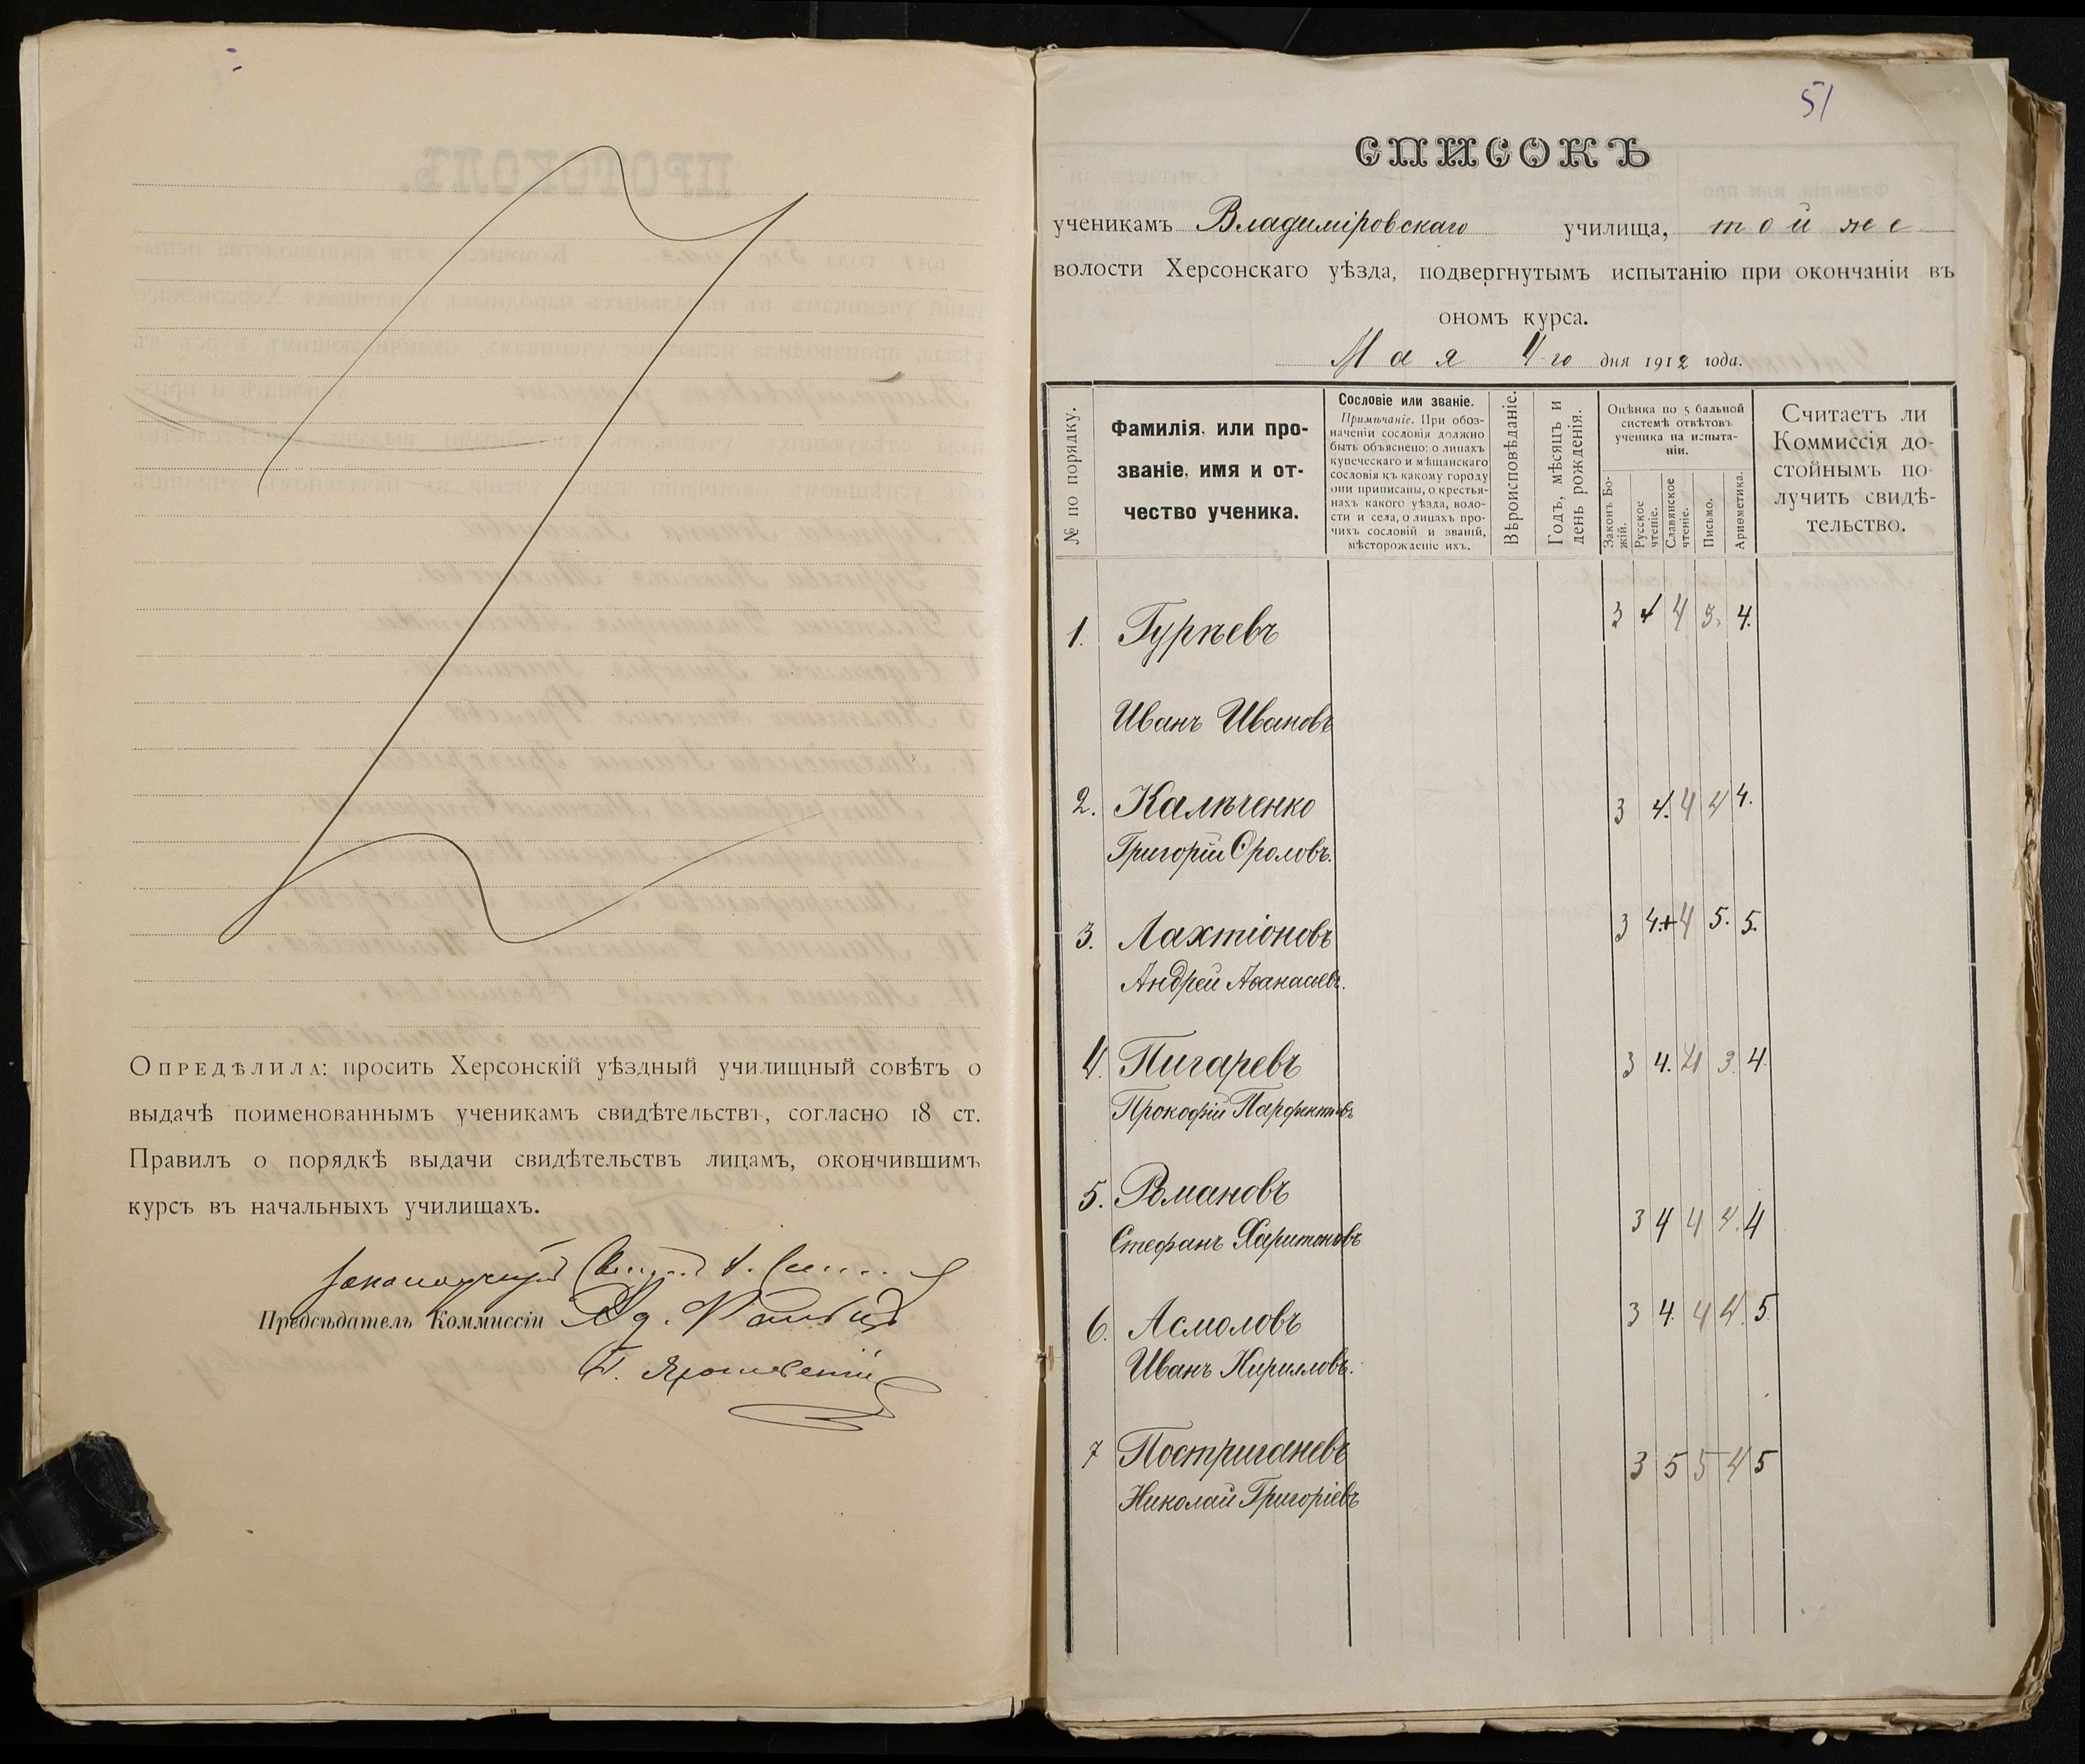 Опредѣлила: просить Херсонскій уѣздный училищный совѣтъ о
выдачѣ поименованнымъ ученикамъ свидѣтельствъ, согласно 18 ст.
Правилъ о порядкѣ выдачи свидѣтельствъ лицамъ, окончившимъ
курсъ въ начальныхъ училищахъ.
Законоучитель
Предсѣдатель Коммиссіи
51
СПИСОКЪ
ученикамъ Владиміровскаго училища, той же
волости Херсонскаго уѣзда, подвергнутымъ испытанію при окончаніи въ
ономъ курса.
Мая 4-го дня 1912 года.
№ по порядку.
Фамилія, или про-
званіе, имя и от-
чество ученика.
Сословіе или званіе.
Примѣчаніе. При обоз-
наченіи сословія должно
быть объяснено: о лицахъ
купеческаго и мѣщанскаго
сословія къ какому городу
они приписаны, о крестья-
нахъ какого уѣзда, воло-
сти и села, о лицахъ про-
чихъ сословій и званій,
мѣсторожденіе ихъ.
Вѣроисповѣданіе.
Годъ, мѣсяцъ и
день рожденія.
Оцѣнка по 5 бальной
системѣ отвѣтовъ
ученика на испыта-
ніи.
Законъ Бо-
жій.
Русское
чтеніе.
Славянское
чтеніе.
Письмо.
Ариѳметика.
Считаетъ ли
Коммиссія до-
стойнымъ по-
лучить свидѣ-
тельство.
1. Гурьевъ 3 4 4 3. 4.
Иванъ Ивановъ
2. Калѣченко 3 4. 4 4 4.
Григорій Фроловъ.
3. Лахтіоновъ 3 4.+ 4 5. 5.
Андрей Аѳанасьевъ.
4. Пигаревъ 3 4. 4 3. 4.
Прокофій Парфентьевъ
5. Романовъ 3 4 4 4. 4
Стефанъ Харитоновъ
6. Асмоловъ 3 4. 4 4. 5.
Иванъ Кирилловъ.
7 Постригановъ 3 5 5 4 5
Николай Григоріевъ